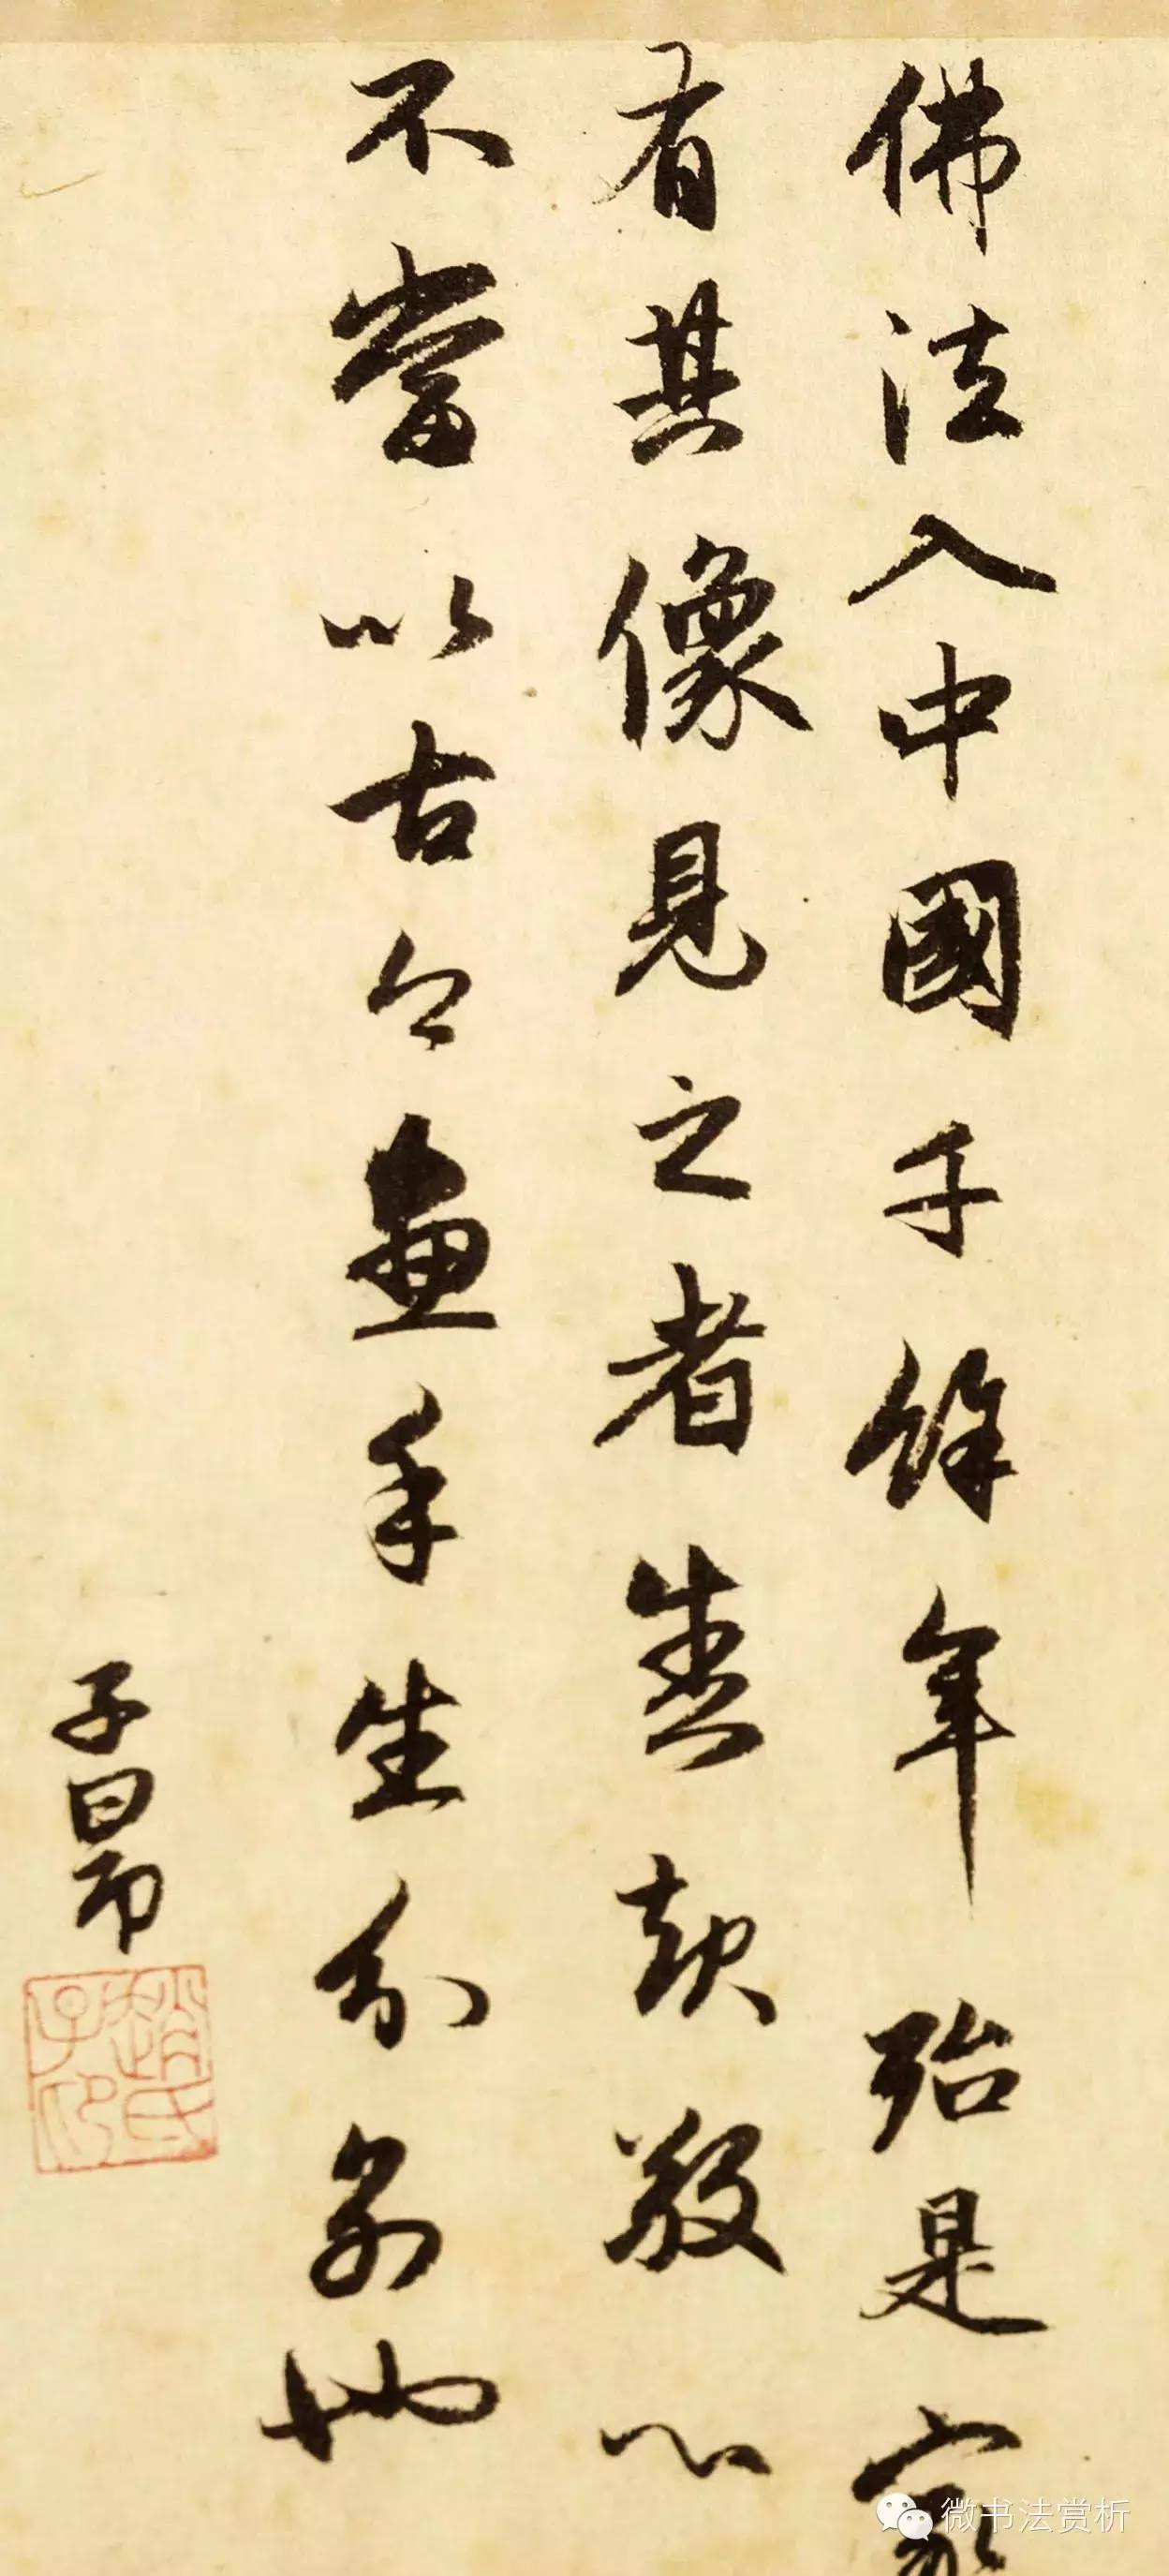 佛法入中國千餘年殆是家
有其像見之者盡起敬心
不當以古今畫手生分別也
子昂
趙氏子印
微书法赏析